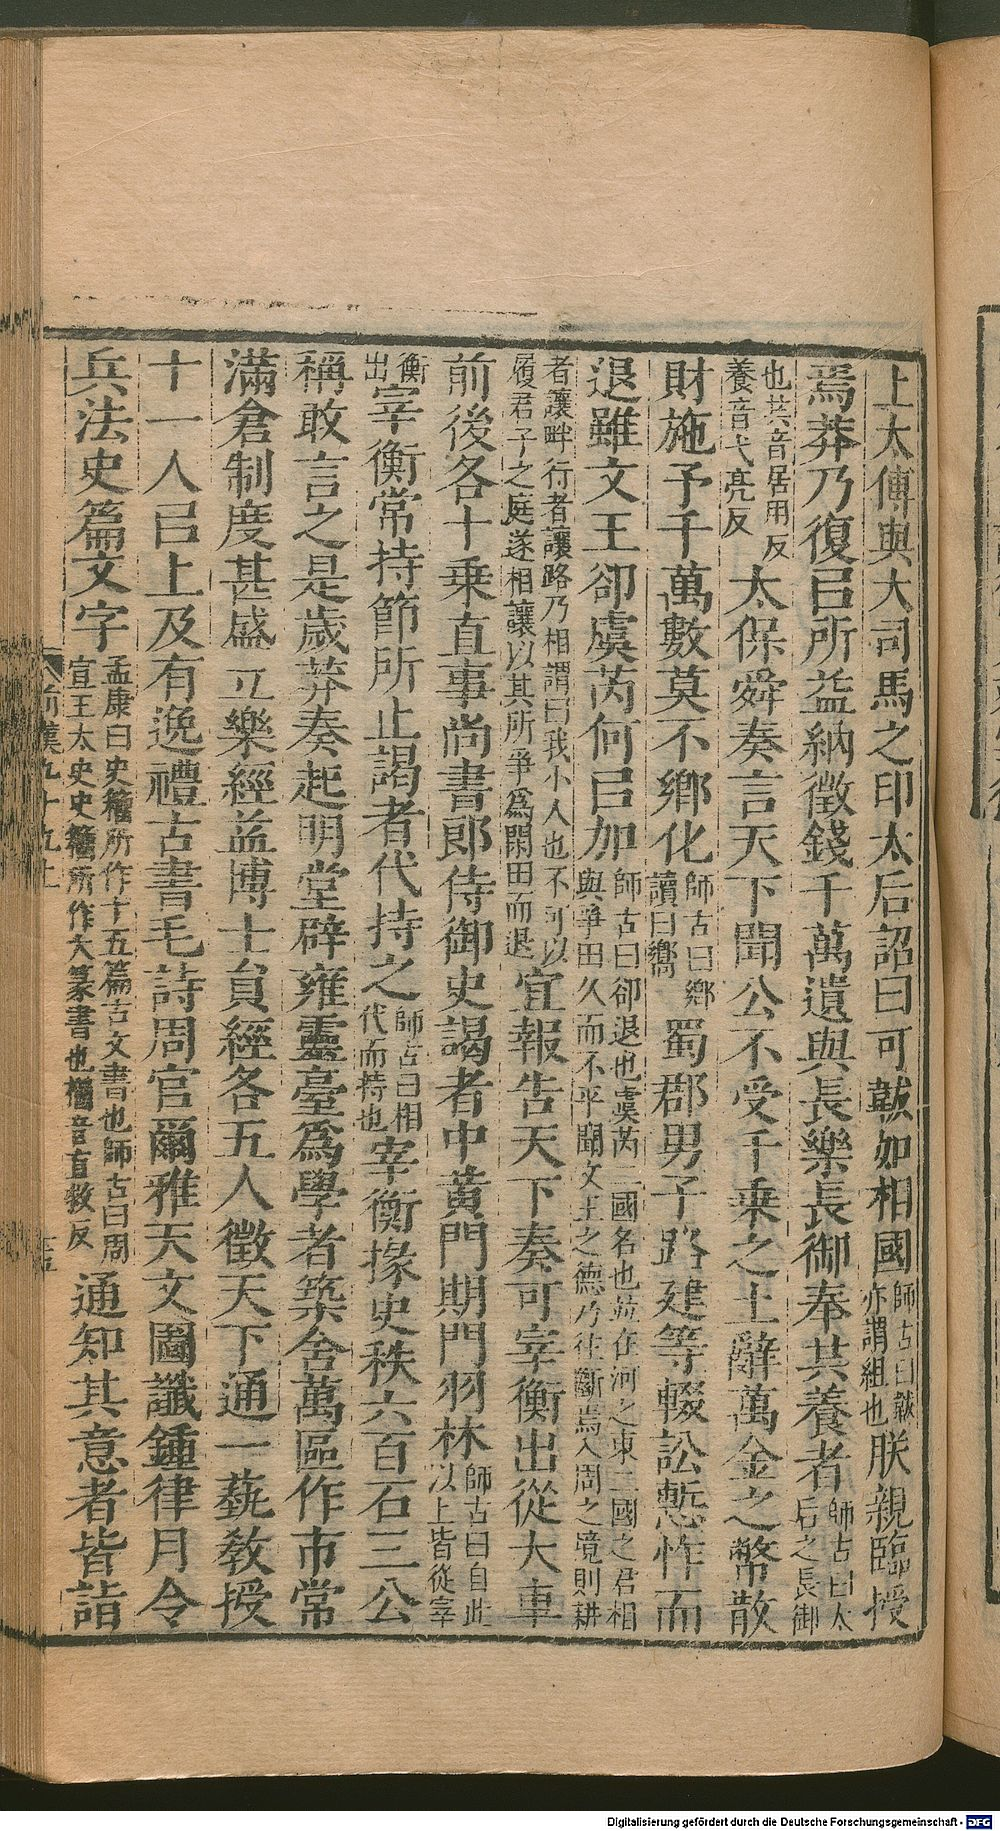 上太傅與大司馬之印太后詔曰可韍如相國師古曰韍亦謂組也朕親臨授
焉莽乃復㠯所益納徵錢千萬遺與長樂長御奉共養者師古曰太后之長御
也共音居用反養音弋亮反太保舜奏言天下聞公不受千乘之土辭萬金之幣散
財施予千萬數莫不鄉化師古曰鄉讀曰嚮蜀郡男子路建等輟訟慙怍而
退雖文王卻虞芮何㠯加師古曰卻退也虞芮二國名也並在河之東二國之君相與爭田久而不平聞文王之德乃往斷焉入周之境則耕
者讓畔行者讓路乃相謂曰我小人也不可以履君子之庭遂相讓以其所爭為閑田而退宜報告天下奏可宰衡出從大車
前後各十乘直事尚書郎侍御史謁者中黃門期門羽林師古曰自此以上皆從宰
衡出宰衡常持節所止謁者代持之師古曰相代而持也宰衡掾史秩六百石三公
稱敢言之是歲莽奏起明堂辟雍靈臺為學者築舍萬區作市常
滿倉制度甚盛立樂經益博士員經各五人徵天下通一藝敎授
十一人㠯上及有逸禮古書毛詩周官爾雅天文圖讖鍾律月令
兵法史篇文字孟康曰史籀所作十五篇古文書也師古曰周宣王太史史籀所作大篆書也籀音直救反通知其意者皆詣
前漢九十九上
Digitalisierung gefördert durch die Deutsche Forschungsgemeinschaft - DFG